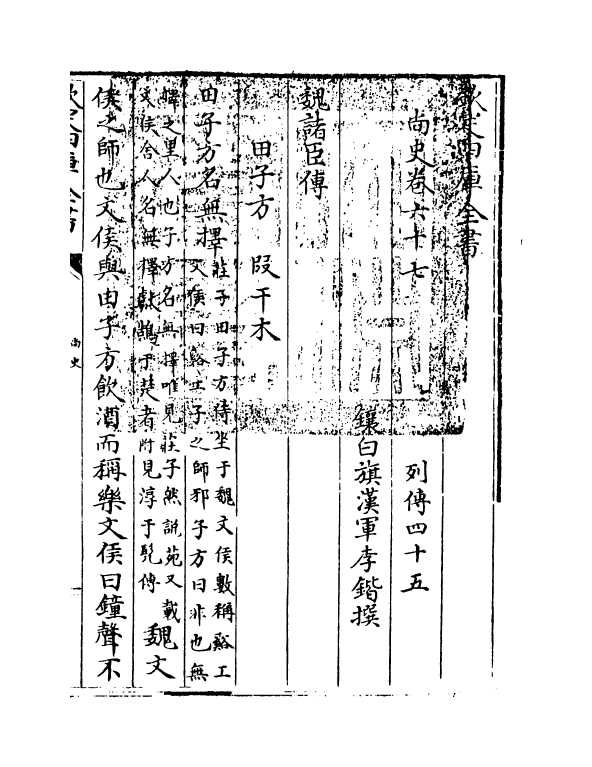 欽定四庫全書
尚史卷六十七 列傳四十五
鑲白旗漢軍李鍇撰
魏諸臣傳
田子方 段干木
田子方名無擇莊子田子方侍坐于魏文侯數稱谿工
文侯曰谿工子之師邪子方曰非也無
擇之里人也子方名無擇唯見莊子然說苑又載
文侯舍人名無擇獻鵠于楚者附見淳于髡傳
魏文
侯之師也文侯與田子方飲酒而稱樂文侯曰鐘聲不
欽定四庫全書
尚史
一